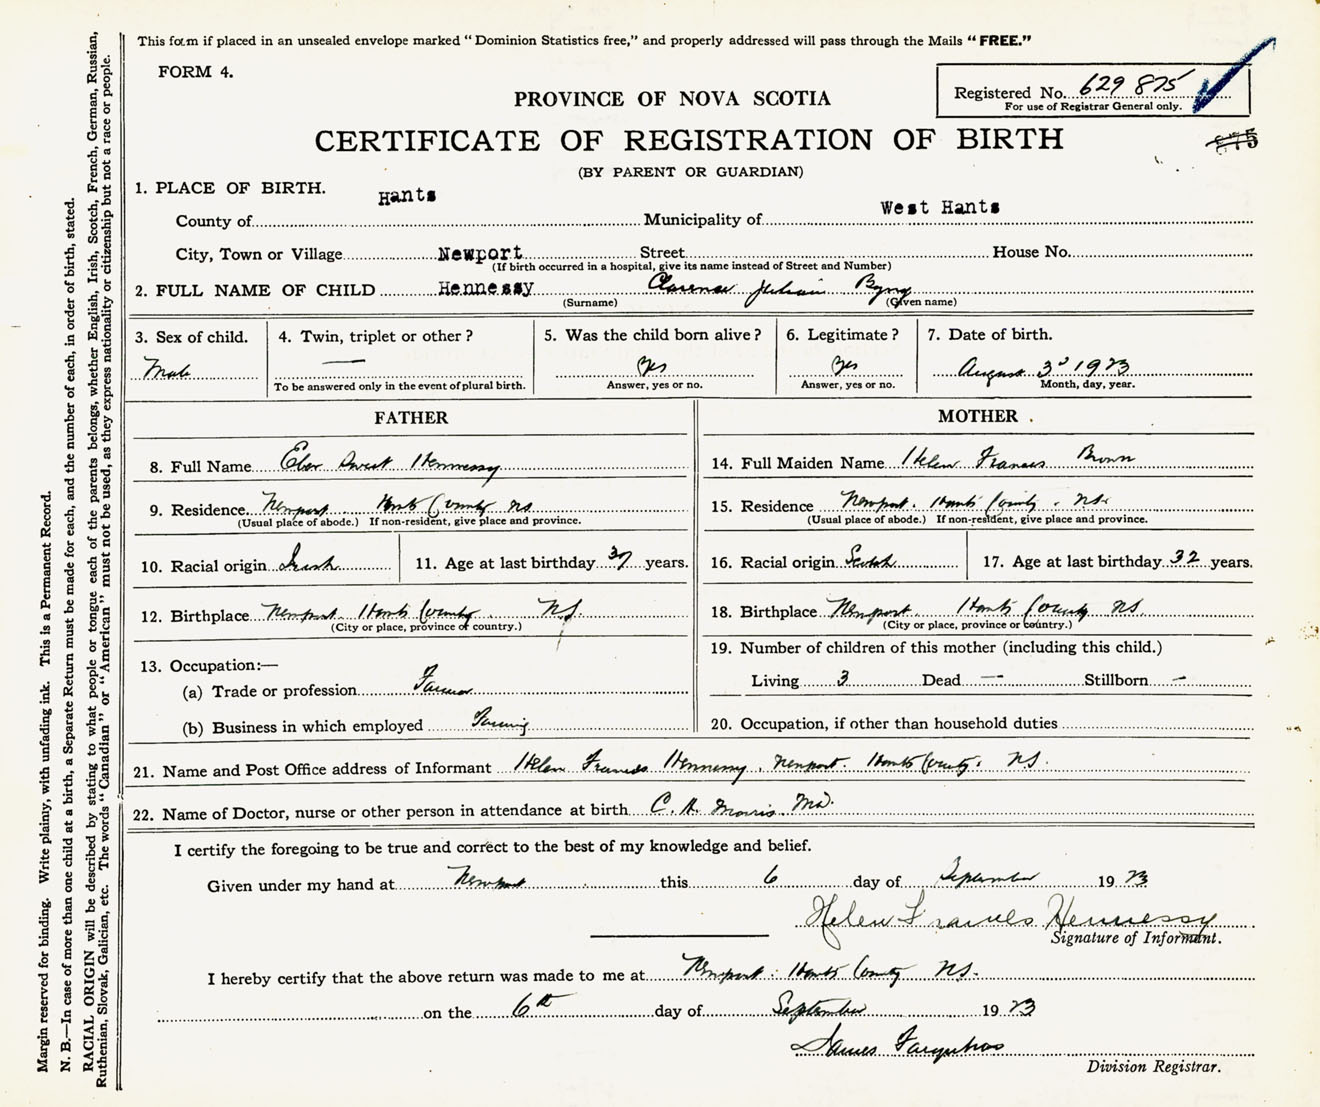 This form if placed in an unsealed envelope marked “Dominion Statistics free,” and properly addressed will pass through the Mails “FREE.”
FORM 4.
Registered No. 629 875
For use of Registrar General only.
PROVINCE OF NOVA SCOTIA
CERTIFICATE OF REGISTRATION OF BIRTH
(BY PARENT OR GUARDIAN)
1. PLACE OF BIRTH.
County of Hants Municipality of West Hants
City, Town or Village Newport Street House No.
(If birth occurred in a hospital, give its name instead of Street and Number)
2. FULL NAME OF CHILD Hennessy Clarence Julian Byng
(Surname) (Given name)
3. Sex of child. 4. Twin, triplet or other? 5. Was the child born alive? 6. Legitimate? 7. Date of birth.
Male — Yes Yes August 3d 1923
To be answered only in the event of plural birth. Answer, yes or no. Answer, yes or no. Month, day, year.
FATHER
8. Full Name Eber Hennessy
9. Residence Newport Hants County NS
(Usual place of abode.) If non-resident, give place and province.
10. Racial origin Irish 11. Age at last birthday 37 years.
12. Birthplace Newport Hants County N.S.
(City or place, province or country.)
13. Occupation:—
(a) Trade or profession Farmer
(b) Business in which employed Farming
MOTHER
14. Full Maiden Name Helen Frances Brown
15. Residence Newport. Hants County. NS.
(Usual place of abode.) If non-resident, give place and province.
16. Racial origin Scotch 17. Age at last birthday 32 years.
18. Birthplace Newport Hants County NS
(City or place, province or country.)
19. Number of children of this mother (including this child.)
Living 3 Dead — Stillborn —
20. Occupation, if other than household duties
21. Name and Post Office address of Informant Helen Frances Hennessy. Newport. Hants County. NS.
22. Name of Doctor, nurse or other person in attendance at birth C. H. Morris MD.
I certify the foregoing to be true and correct to the best of my knowledge and belief.
Given under my hand at Newport this 6 day of September 1923
Helen Frances Hennessy
Signature of Informant.
I hereby certify that the above return was made to me at Newport. Hants County NS.
on the 6th day of September 1923
James Farquhar
Division Registrar.
Margin reserved for binding. Write plainly, with unfading ink. This is a Permanent Record.
N. B.—In case of more than one child at a birth, a Separate Return must be made for each, and the number of each, in order of birth, stated.
RACIAL ORIGIN will be described by stating to what people or tongue each of the parents belongs, whether English, Irish, Scotch, French, German, Russian,
Ruthenian, Slovak, Galician, etc. The words “Canadian” or “American” must not be used, as they express nationality or citizenship but not a race or people.